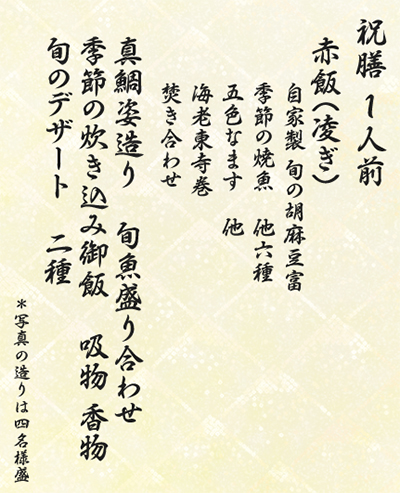 祝膳 1人前
赤飯(凌ぎ)
自家製 旬の胡麻豆富
季節の焼魚 他六種
五色なます 他
海老東寺巻
焚き合わせ
真鯛姿造り 旬魚盛り合わせ
季節の炊き込み御飯 吸物 香物
旬のデザート 二種
＊写真の造りは四名様盛